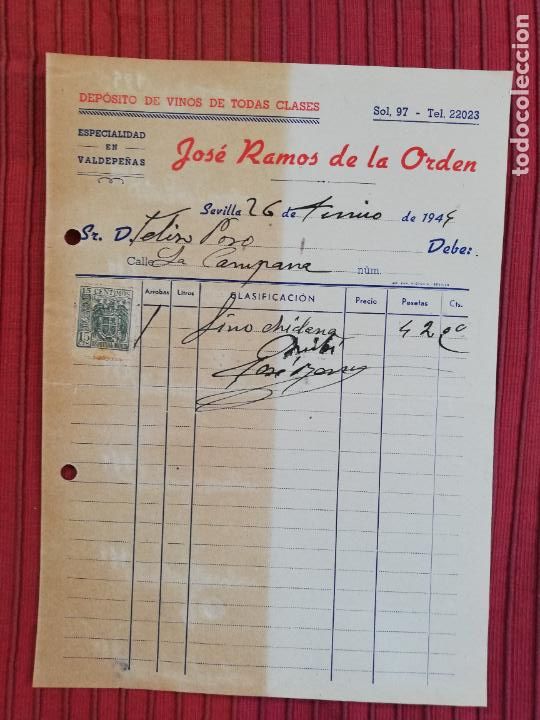 DEPÓSITO DE VINOS DE TODAS CLASES
Sol, 97 - Tel. 22023
ESPECIALIDAD
EN
VALDEPEÑAS
José Ramos de la Orden
Sevilla 26 de Junio de 1944
Sr. D. Felix Pozo Debe:
Calle La Campana núm.
Arrobas Litros CLASIFICACIÓN Precio Pesetas Cts.
15 CENTIMOS
15
1 fino 42 00
Recibí
José Ramos
todocoleccion